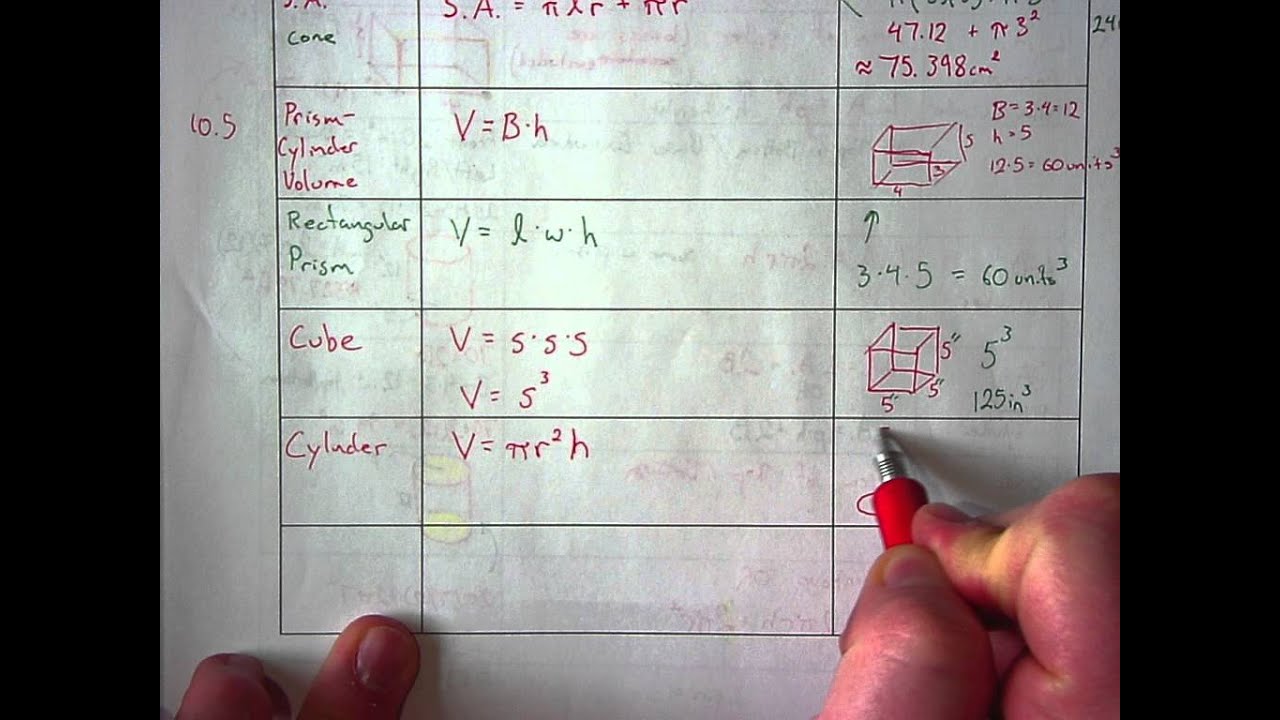 S.A.
cone
S.A. = πlr + πr
47.12 + π3²
≈ 75.398cm²
10.5
Prism-
Cylinder
Volume
V = B·h
B = 3·4 = 12
h = 5
12·5 = 60 units³
5
3
4
Rectangular
Prism
V = l·w·h
↑
3·4·5 = 60 units³
Cube
V = s·s·s
V = s³
5"
5"
5"
5³
125in³
Cylnder
V = πr²h